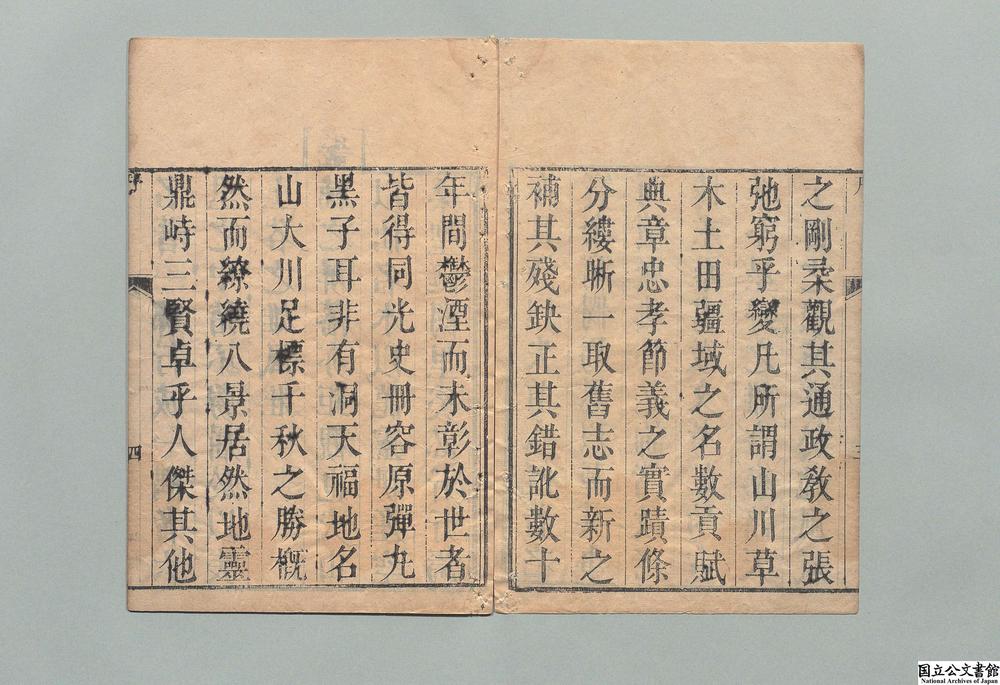 之剛柔觀其通政敎之張
弛窮乎變凡所謂山川草
木土田疆域之名數貢賦
典章忠孝節義之實蹟條
分縷晰一取舊志而新之
補其殘缺正其錯訛數十
年間鬱湮而未彰於世者
皆得同光史冊容原彈丸
黑子耳非有洞天福地名
山大川足標千秋之勝槪
然而繚繞八景居然地靈
鼎峙三賢卓乎人傑其他
序
四
国立公文書館
National Archives of Japan